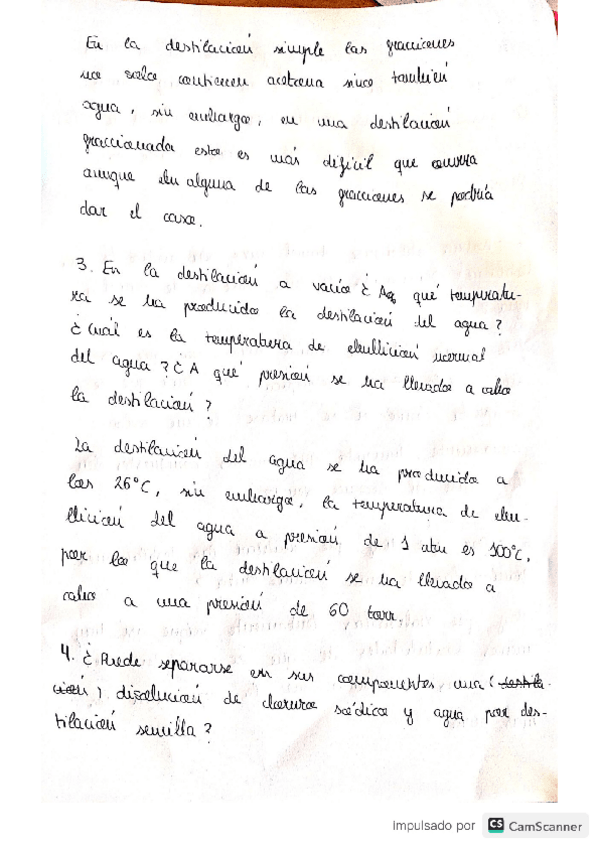 En la destilación simple las fracciones
no solo contienen acetona sino también
agua, sin embargo, en una destilación
fraccionada esto es más difícil que ocurra
aunque en alguna de las fracciones se podría
dar el caso.
3. En la destilación a vacío ¿A qué temperatu-
ra se ha producido la destilación del agua?
¿Cuál es la temperatura de ebullición normal
del agua? ¿A qué presión se ha llevado a cabo
la destilación?
La destilación del agua se ha producido a
los 26°C, sin embargo, la temperatura de ebu-
llición del agua a presión de 1 atm es 100°C,
por lo que la destilación se ha llevado a
cabo a una presión de 60 torr.
4. ¿Puede separarse en sus componentes una (destila-
ción) disolución de cloruro sódico y agua por des-
tilación sencilla?
Impulsado por CS CamScanner